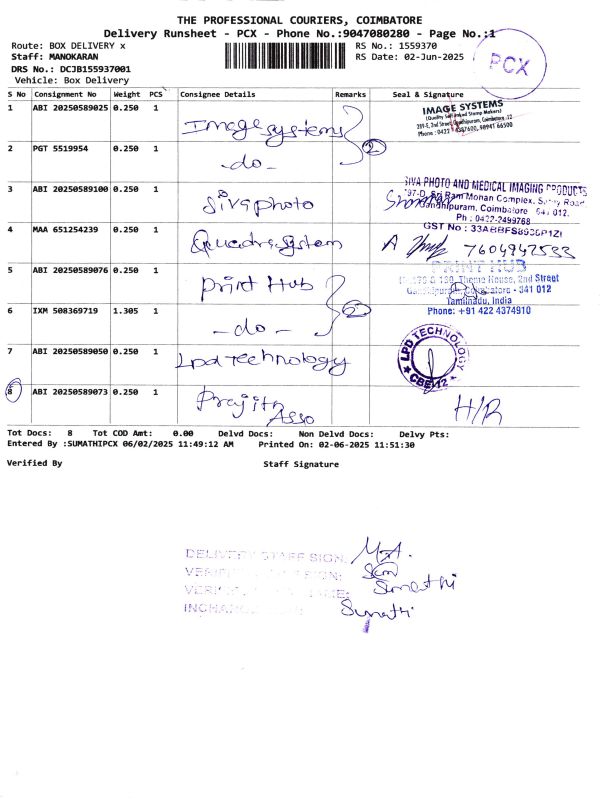 THE PROFESSIONAL COURIERS, COIMBATORE
Delivery Runsheet - PCX - Phone No.:9047080280 - Page No.:1
Route: BOX DELIVERY x
RS No.: 1559370
Staff: MANOKARAN
RS Date: 02-Jun-2025
DRS No.: DCJB155937001
Vehicle: Box Delivery
PCX
S No Consignment No Weight PCS Consignee Details Remarks Seal & Signature
1 ABI 20250589025 0.250 1 Image systems
IMAGE SYSTEMS
2 PGT 5519954 0.250 1 -do- 2
3 ABI 20250589100 0.250 1 Siva photo
SIVA PHOTO AND MEDICAL IMAGING PRODUCTS
Gandhipuram, Coimbatore 641 012.
Ph : 0422-2499768
4 MAA 651254239 0.250 1 Quadra system 7604947533
GST No :
5 ABI 20250589076 0.250 1 Print Hub
PRINT HUB
2nd Street
Coimbatore - 641 012
Tamilnadu, India
Phone: +91 422 4374910
6 IXM 508369719 1.305 1 -do- 2
7 ABI 20250589050 0.250 1 Lpd Technology
LPD TECHNOLOGY
CBE-12
8 ABI 20250589073 0.250 1 Prajith Asso H/R
Tot Docs: 8 Tot COD Amt: 0.00 Delvd Docs: Non Delvd Docs: Delvy Pts:
Entered By :SUMATHIPCX 06/02/2025 11:49:12 AM Printed On: 02-06-2025 11:51:30
Verified By Staff Signature
DELIVERY STAFF SIGN:
Sumathi
Sumathi